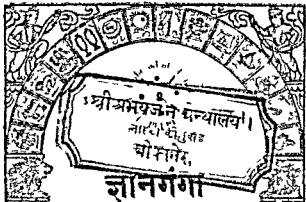 श्री अभय जैन ग्रन्थालय ।
बीकानेर,
ज्ञानगंगा